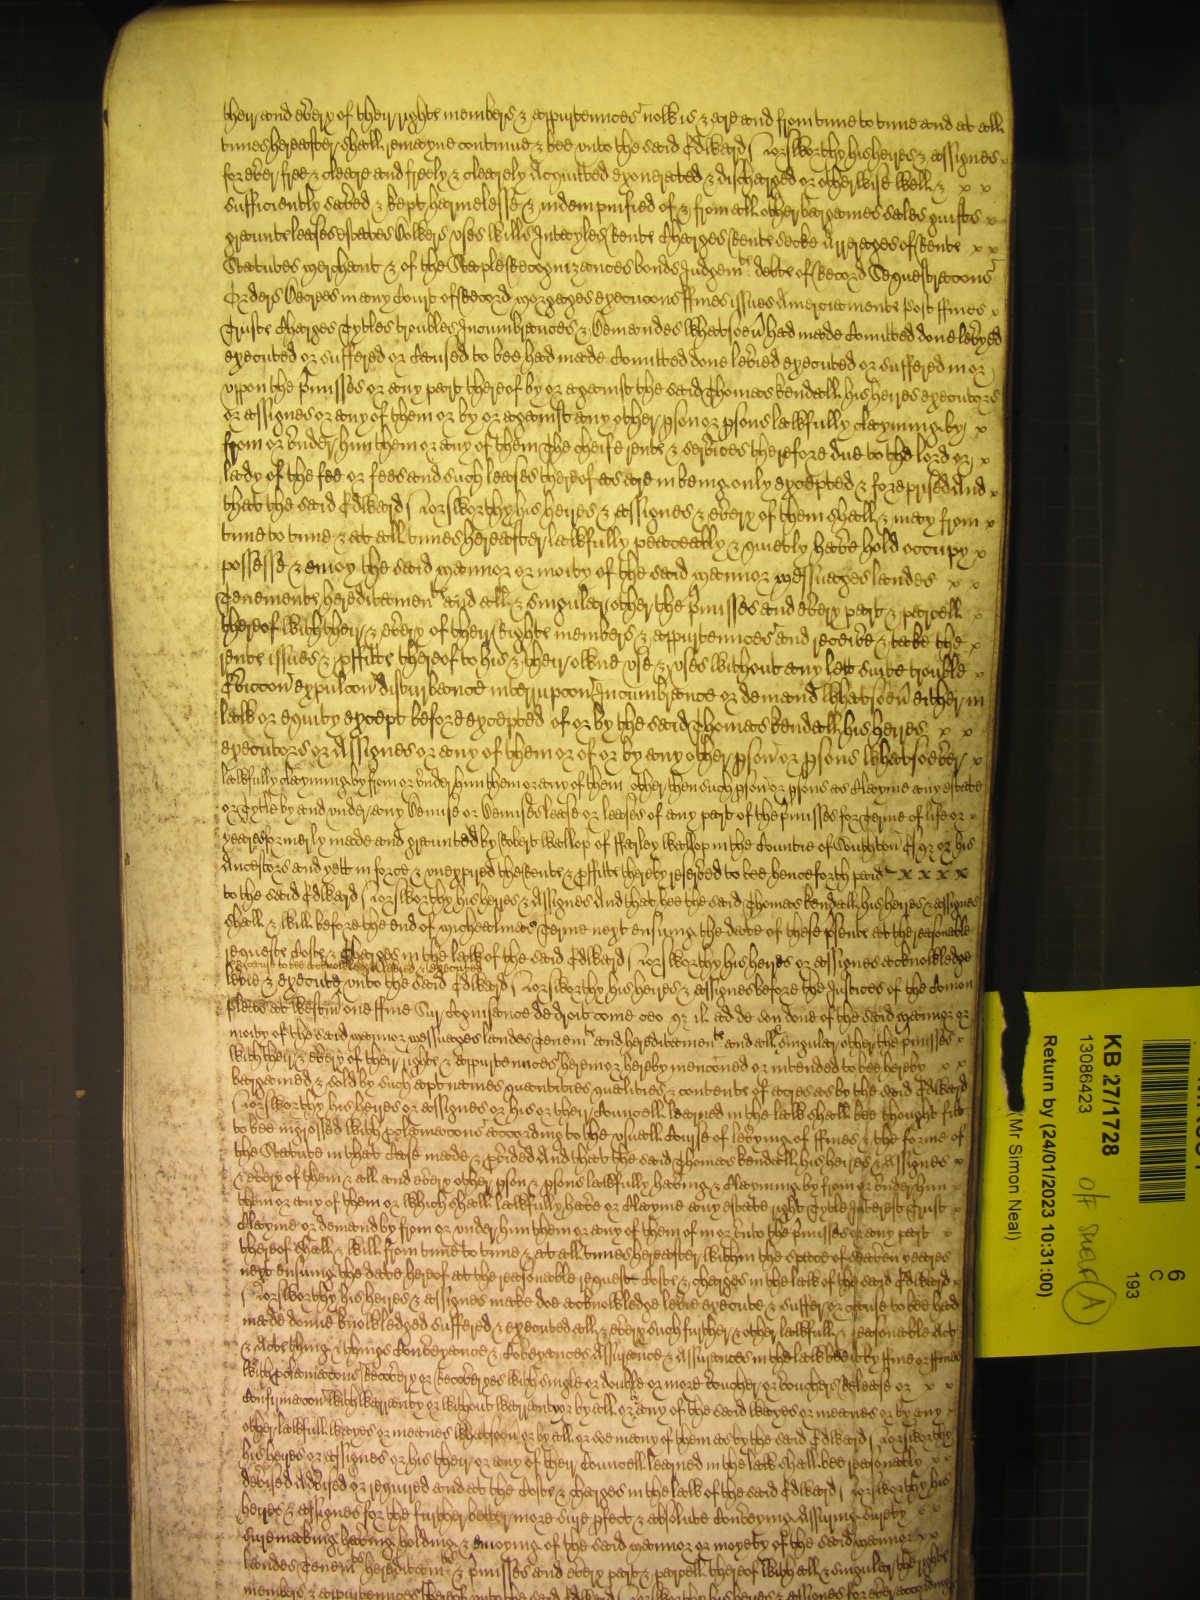 their and every of their right members & appurtennces now is & are and from time to time and at all
times hereafter shall remayne continue & bee unto the said Edward Norsworthy his heires & assignes x
for ever free & cleare and freely & clearely Acquitted exonerated & discharged or otherwise well & x x
sufficiently saved & kept harmelesse & indempnified of & from all other bargaines sales guifts x
graunts leases estates Dowers uses wills Intayles Rents Charges Rents secke Arrerages of Rents x x
Statutes merchant & of the Staple Recognizances bonds Judgemts debts of Record Sequestracons
Orders Decrees in any Court of Record morgages execucons ffines issues Amerciaments Post ffines x
Trusts Charges Tytles troubles Incumbrances & Demandes whatsoeu had made Comitted done levyed
executed or suffered or Caused to bee had made Comitted done levied executed or suffered in or
uppon the pmisses or any part thereof by or against the said Thomas Kendall his heires executors
or assignes or any of them or by or against any other pson or psons lawfully clayming by x
from or under him them or any of them The cheife rents & services therefore due to the lord or x
lady of the fee or fees and such leases thereof as are in being only excepted & foreprised And x
that the said Edward Norsworthy his heires & assignes & every of them shall & may from x
time to time & at all times hereafter lawfully peaceably & quietly have hold occupy x
possesse & enioy the said mannor or moity of the said mannor messuages landes x x
Tenements hereditaments and all & singular other the pmisses and every part & parcell x
thereof with their & every of their Rights members & appurtennces and receive & take the x
rents issues & pffitts thereof to his & their owne use & uses without any lett suite trouble x
Eviccon expulcon disturbance interrupcon Incumbrance or demand whatsoeu either in
law or equity except before excepted of or by the said Thomas Kendall his heires x x
executors or Assignes or any of them or of or by any other pson or psons whatsoever x
lawfully clayming by from or under him them or any of them other then such pson or psons as Clayme any estate
or Tytle by and under any Demise or Demises lease or leases of any part of the pmisses for Terme of life or x
yeares formerly made and graunted by Robert Wallop of ffarley Wallop in the Countie of Southton Esqr or his
Ancestors and yett in force & unexpired the Rents & pffitts thereby reserved to bee henceforth paid x x x x
to the said Edward Norsworthy his heires & Assignes And that hee the said Thomas Kendall his heires & assignes
shall & will before the end of Michaelmas Terme next ensuing the date of these psents at the reasonable
requests Costs & Charges in the law of the said Edward Norsworthy his heires or assignes acknowledge
or cause to bee acknowledged levied & executed
levie & execute unto the said Edward Norsworthy his heires & assignes before the Justices of the Comon
pleas at Westmr one ffine Sur Cognisance de droit come ceo qr il ad de son done of the said mannor or
moity of the said mannor messuages landes Tenemts and hereditaments and all & singular other the pmisses x
with their & every of their rights & appurtennces herein or hereby menconed or intended to bee hereby x x
bargained & sold by such apt names quantities qualities & contents of acres as by the said Edward
Norsworthy his heires or assignes or his or their Councell learned in the law shall bee thought fitt
to bee ingrossed with pclamacons according to the usuall Course of levying of ffines & the forme of
the Statute in that Case made & pvided And that the said Thomas Kendall his heires & Assignes x
& every of them & all and every other pson & psons lawfully having & Clayming by from or under him x
them or any of them or which shall lawfully have or Clayme any estate right Tytle Interest Trust x
Clayme or demand by from or under him them or any of them of in or unto the pmisses or any part x
thereof shall & will from time to time & at all times hereafter within the space of seaven yeares
next ensuing the date hereof at the reasonable request Costs & charges in the law of the said Edward x
Norsworthy his heires & assignes make doe acknowledge levie execute & suffer or cause to bee had
made donne knowledged suffered & executed all & every such further & other lawfull & reasonable Act
& Acts thing & things Conveyance & Conveyances Assurance & Assurances in the law bee it by ffine or ffines
with pclamacons Recovery or Recoveryes with single or double or more voucher or vouchers Release or x x
Confirmacon with warranty or without warranty or by all or any of the said wayes or meanes or by any x
other lawfull wayes or meanes whatsoeu or by all or soe many of them as by the said Edward Norsworthy
his heires or assignes or his their or any of their Councell learned in the law shall bee reasonably x x
devised Advised or required and at the Costs & charges in the law of the said Edward Norsworthy his
heires & assignes for the further better more sure pfect & absolute Conveying Assuring surety x x
sure making having holding & enioying of the said mannor or moyety of the said mannor x x
landes Tenemts hereditamts & pmisses and every part & parcell thereof with all & singular the rights
members & appurtennces unto the said Edward Norsworthy his heires & assignes for ever according
6
C
193
KB 27/1728
13086423
off smear A
Return by (24/01/2023 10:31:00)
(Mr Simon Neal)